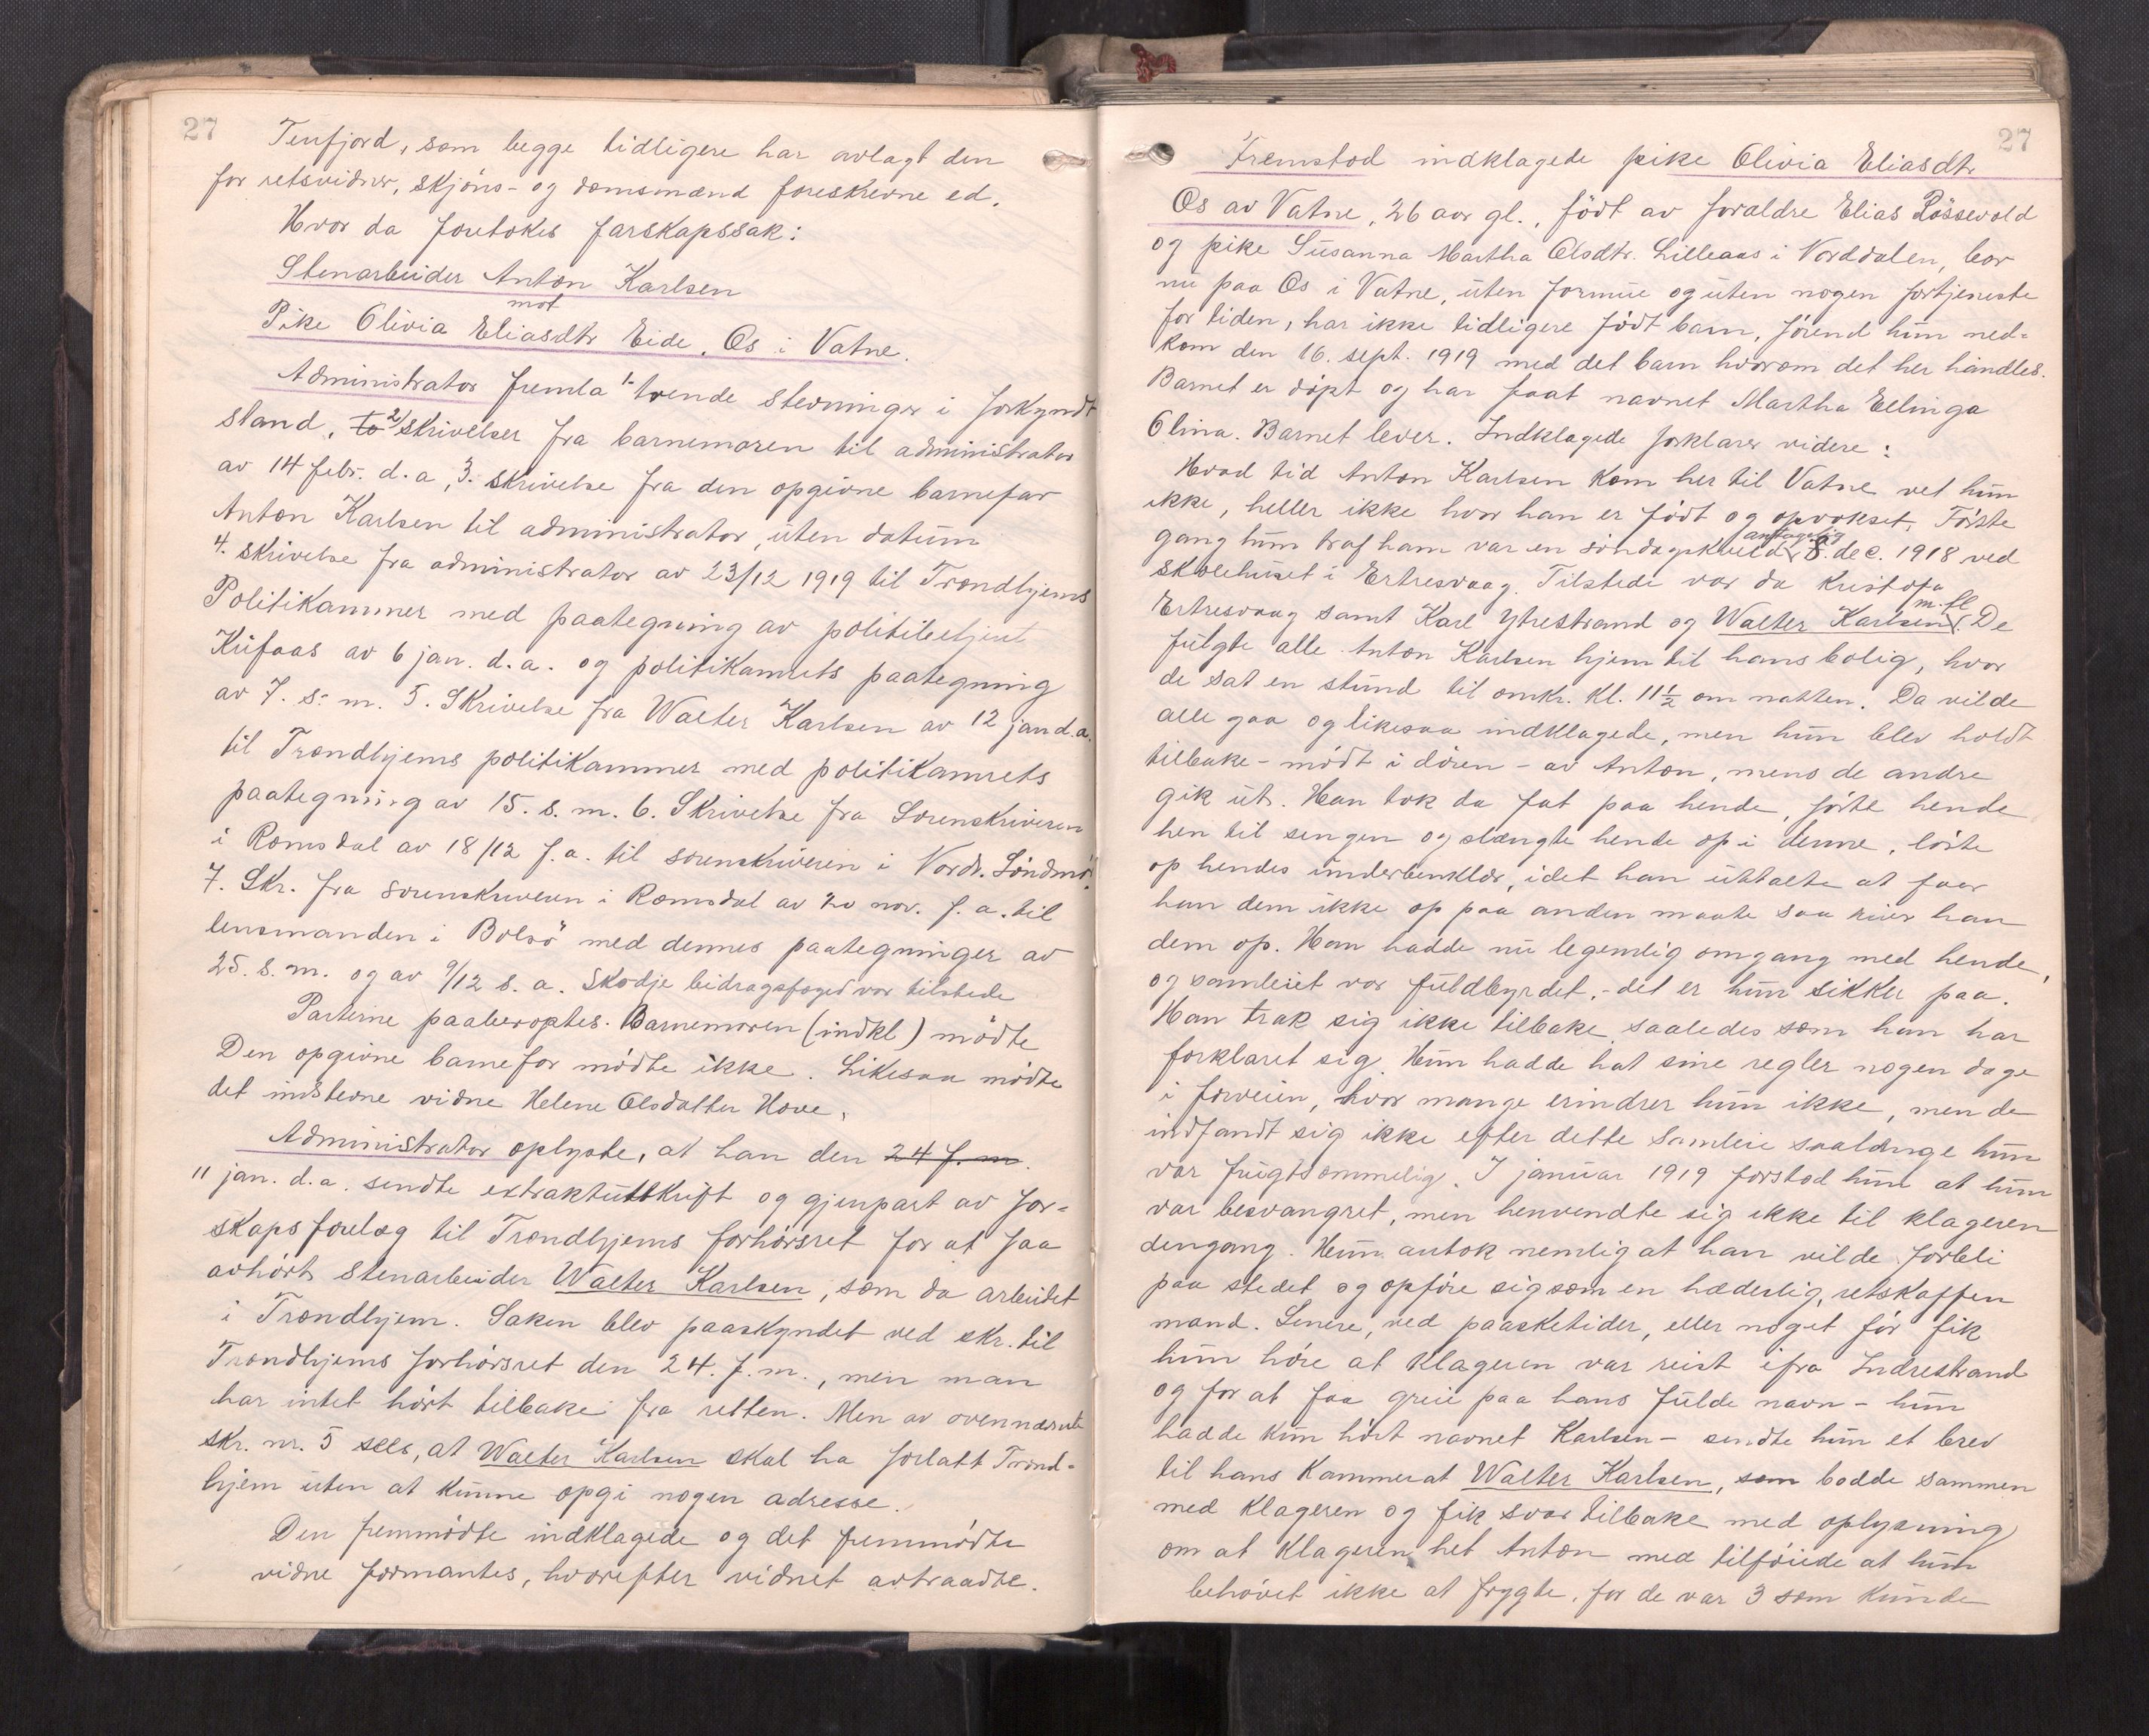 27
Tenfjord, som begge tidligere har avlagt den
for retsvidner, skjöns- og domsmænd foreskrevne ed.
Hvor da foretokes farskapssak:
Stenarbeider Anton Karlsen
mot
Pike Olivia Eliasdtr Eide, Os i Vatne.
Administrator fremla 1. tvende stevninger i forkyndt
stand, to 2/ skrivelser fra barnemoren til administrator
av 14 febr. d.a, 3. skrivelse fra den opgivne barnefar
Anton Karlsen til administrator, uten datum
4. skrivelse fra administrator av 23/12 1919 til Trondhjems
Politikammer med paategning av politibetjent
Kufaas av 6 jan. d.a. og politikamrets paategning
av 7. s. m. 5. Skrivelse fra Walter Karlsen av 12 jan d.a.
til Trondhjems politikammer med politikamrets
paategning av 15. s. m. 6. Skrivelse fra Sorenskriveren
i Romsdal av 18/12 f.a. til sorenskriveren i Nordr. Söndmör.
7. Skr. fra sorenskriveren i Romsdal av 20 nov. f.a. til
lensmanden i Bolsö med dennes paategninger av
25. s. m. og av 9/12 s. a. Skodje bidragsfoged var tilstede
Parterne paaberoptes. Barnemoren (indkl) mödte
Den opgivne barnefar mödte ikke. Likesaa mödte
det indstevne vidne Helene Olsdatter Hove.
Administrator oplyste, at han den 24 f. m.
11 jan. d.a. sendte extraktutskrift og gjenpart av far-
skapsforelæg til Trondhjems forhörsret for at faa
avhört stenarbeider Walter Karlsen, som da arbeidet
i Trondhjem. Saken blev paaskyndet ved skr. til
Trondhjems forhörsret den 24. f. m., men man
har intet hört tilbake fra retten. Men av ovennævnte
skr. nr. 5 sees, at Walter Karlsen skal ha forlatt Trond-
hjem uten at kunne opgi nogen adresse.
Den fremmödte indklagede og det fremmödte
vidne formantes, hvorefter vidnet avtraadte.
27
Fremstod indklagede pike Olivia Eliasdtr
Os av Vatne, 26 aar gl., födt av foraldre Elias Rössevold
og pike Susanna Martha Olsdtr. Lilleaas i Norddalen, bor
nu paa Os i Vatne, uten formue og uten nogen fortjeneste
for tiden, har ikke tidligere födt barn, förend hun ned-
kom den 16. sept. 1919 med det barn hvorom det her handles.
Barnet er döpt og har faat navnet Martha Ellinga
Olina. Barnet lever. Indklagede forklarer videre:
Hvad tid Anton Karlsen kom her til Vatne vet hun
ikke, heller ikke hvor han er födt og opvokset. Förste
gang hun traf ham var en söndagskveld antagelig 8. dec. 1918 ved
skolehuset i Ertresvaag. Tilstede var da Kristofa
Ertresvaag samt Karl Ytrestrand og Walter Karlsen m. fl. De
fulgte alle Anton Karlsen hjem til hans bolig, hvor
de sat en stund til omkr. kl. 11½ om natten. Da vilde
alle gaa og likesaa indklagede, men hun blev holdt
tilbake - mödt i dören - av Anton, mens de andre
gik ut. Han tok da fat paa hende, förte hende
hen til sengen og slængte hende op i denne, löste
op hendes underbenklær, idet han uttalte at faar
han dem ikke op paa anden maate saa river han
dem op. Han hadde nu legemlig omgang med hende,
og samleiet var fuldbyrdet, - det er hun sikker paa.
Han trak sig ikke tilbake saaledes som han har
forklaret sig. Hun hadde hat sine regler nogen dage
i forveien, hvor mange erindrer hun ikke, men de
indfandt sig ikke efter dette samleie saalænge hun
var frugtsommelig. I januar 1919 forstod hun at hun
var besvangret, men henvendte sig ikke til klageren
dengang. Hun antok nemlig at han vilde forbli
paa stedet og opföre sig som en hæderlig, retskaffen
mand. Senere, ved paasketider, eller noget för fik
hun höre at klageren var reist ifra Indrestrand
og for at faa greie paa hans fulde navn - hun
hadde kun hört navnet Karlsen - sendte hun et brev
til hans kammerat Walter Karlsen, som bodde sammen
med klageren og fik svar tilbake med oplysning
om at klageren het Anton med tilföiede at hun
behövet ikke at frygte, for de var 3 som kunde